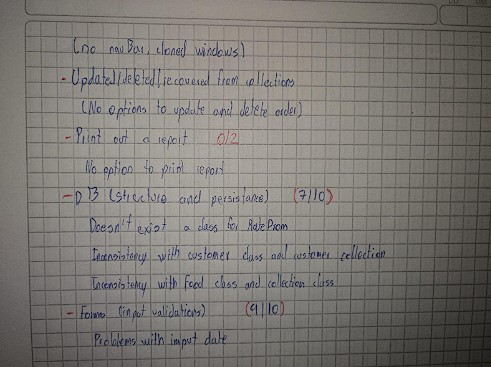 (no nav Bar, cloned windows)
- Updated/deleted/recovered from collections
(No options to update and delete order)
- Print out a report 0/2
No option to print report
- DB (structure and persistance) (7/10)
Doesn't exist a class for RateProm
Inconsistency with customer class and customer collection
Inconsistency with Food class and collection class
- Forms (input validations) (9/10)
Problems with imput date